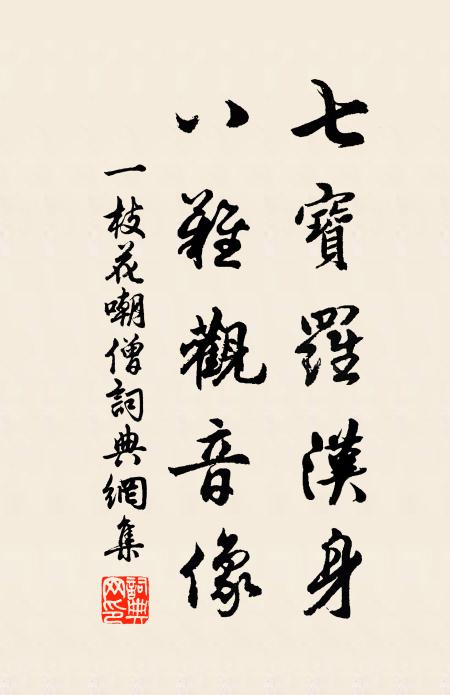 七寶羅漢身
八難觀音像
一枝花嘲僧詞典網集
詞典
网印